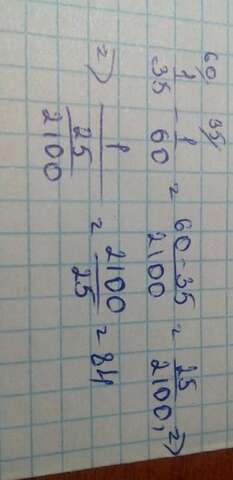 60/ 35/
1/35 - 1/60 = 60-35/2100 = 25/2100, 2)
2) 1/(25/2100) = 2100/25 = 84